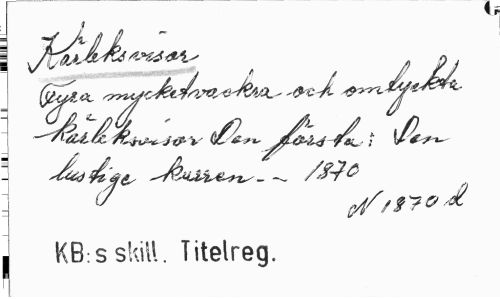 Kärleksvisor
Fyra mycket vackra och omtyckta
kärleksvisor Den första: Den
lustige kurren - - 1870
N 1870 d
KB:s skill. Titelreg.